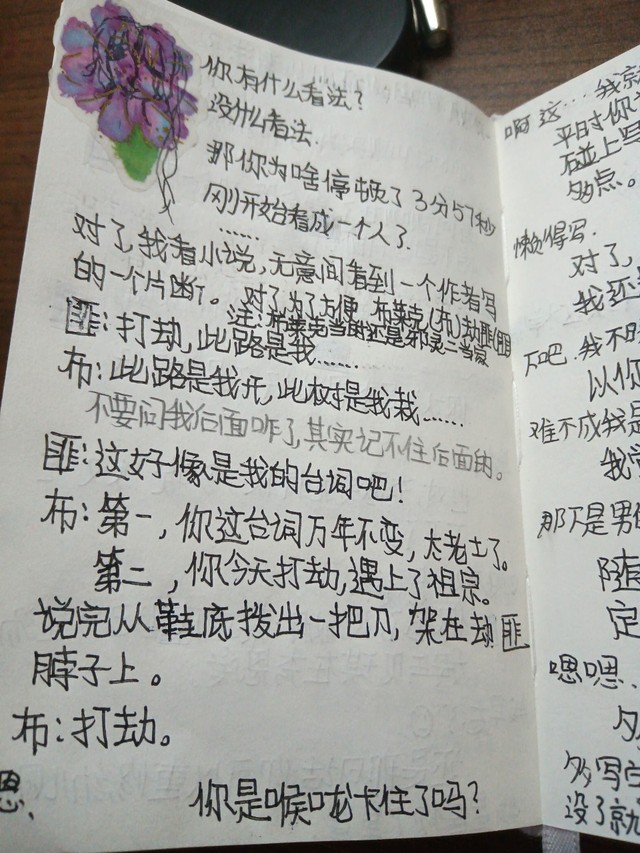 你有什么看法?
没什么看法.
那你为啥停顿了3分57秒
刚开始看成一个人了.
……
对了,我看小说,无意间看到一个作者写
的一个片断。对了为了方便 布莱克(布)劫匪(匪)
注:布莱克当时还是邪灵二当家
匪:打劫,此路是我……
布:此路是我开,此树是我栽……
不要问我后面咋了,其实记不住后面的。
匪:这好像是我的台词吧!
布:第一,你这台词万年不变,太老土了。
第二,你今天打劫,遇上了祖宗。
说完从鞋底拨出一把刀,架在劫匪
脖子上。
布:打劫。
你是喉咙卡住了吗?
恩.
啊这…我就
平时你
碰上写
多点。
懒得写.
对了,
我还
不吧.我不
以你
难不成我是
我
那不是男
随
定
嗯嗯.
多写
没了就